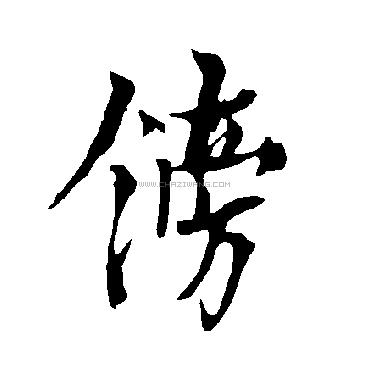 傍
WWW.CHAZIWANG.COM